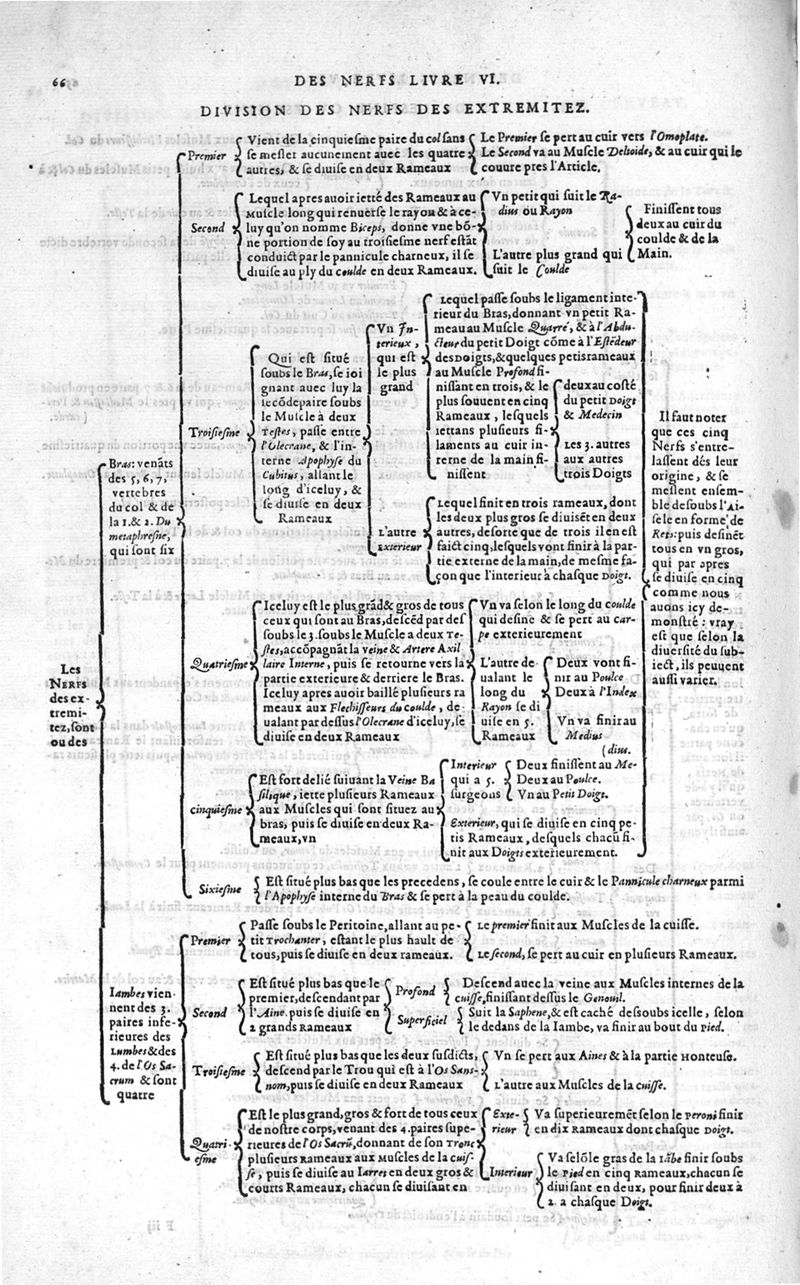 66
DES NERFS LIVRE VI.
DIVISION DES NERFS DES EXTREMITEZ.
Les
NERFS
des ex-
tremi-
tez, sont
ou des
Bras: venãts
des 5, 6, 7,
vertebres
du col & de
la 1. & 2. Du
metaphresne,
qui sont six
Premier
Vient de la cinquiesme paire du col sans
se mesler aucunement auec les quatre
autres, & se diuise en deux Rameaux
Le Premier se pert au cuir vers l'Omoplate.
Le Second va au Muscle Deltoide, & au cuir qui le
couure pres l'Article.
Second
Lequel apres auoir ietté des Rameaux au
Muscle long qui renuerse le rayon & à ce-
luy qu'on nomme Biceps, donne vne bõ-
ne portion de soy au troisiesme nerf estãt
conduict par le pannicule charneux, il se
diuise au ply du coulde en deux Rameaux.
Vn petit qui suit le Ra-
dius ou Rayon
L'autre plus grand qui
suit le Coulde
Finissent tous
deux au cuir du
coulde & de la
Main.
Troisiesme
Qui est situé
soubs le Bras, se ioi
gnant auec luy la
secõdepaire soubs
le Muscle à deux
Testes, passe entre
l'Olecrane, & l'in-
terne Apophyse du
Cubitus, allant le
long d'iceluy, &
se diuise en deux
Rameaux
Vn In-
terieux,
qui est
le plus
grand
Lequel passe soubs le ligament inte-
rieur du Bras, donnant vn petit Ra-
meau au Muscle Quarré, & à l'Abdu-
cteur du petit Doigt cõme à l'Estẽdeur
des Doigts, & quelques petis rameaux
au Muscle Profond fi-
nissant en trois, & le
plus souuent en cinq
Rameaux, lesquels
iettans plusieurs fi-
laments au cuir in-
terne de la main fi-
nissent
deux au costé
du petit Doigt
& Medecin
Les 3. autres
aux autres
trois Doigts
L'autre
Exterieur
Lequel finit en trois rameaux, dont
les deux plus gros se diuisẽt en deux
autres, desorte que de trois il en est
faict cinq, lesquels vont finir à la par-
tie externe de la main, de mesme fa-
çon que l'interieur à chasque Doigt.
Quatriesme
Iceluy est le plus grãd & gros de tous
ceux qui sont au Bras, descẽd par des
soubs le 3. soubs le Muscle a deux Te-
stes, accõpagnãt la veine & Artere Axil
laire Interne, puis se retourne vers la
partie exterieure & derriere le Bras.
Iceluy apres auoir baillé plusieurs ra
meaux aux Flechisseurs du coulde, de-
ualant par dessus l'Olecrane d'iceluy, se
diuise en deux Rameaux
Vn va selon le long du coulde
qui define & se pert au car-
pe exterieurement
L'autre de-
ualant le
long du
Rayon se di
uise en 5.
Rameaux
Deux vont fi-
nir au Poulce
Deux à l'Index
Vn va finir au
Medius
(dius.
cinquiesme
Est fort delié suiuant la Veine Ba
silique, iette plusieurs Rameaux
aux Muscles qui sont situez au
bras, puis se diuise en deux Ra-
meaux, vn
Interieur
qui a 5.
surgeons
Deux finissent au Me-
Deux au Poulce.
Vn au Petit Doigt.
Exterieur, qui se diuise en cinq pe-
tis Rameaux, desquels chacũ fi-
nit aux Doigts exterieurement.
Sixiesme
Est situé plus bas que les precedens, se coule entre le cuir & le Pannicule charneux parmi
l'Apophyse interne du Bras & se pert à la peau du coulde.
Il faut noter
que ces cinq
Nerfs s'entre-
lassent dés leur
origine, & se
meslent ensem-
ble desoubs l'Ai-
sele en forme de
Rets: puis definẽt
tous en vn gros,
qui par apres
se diuise en cinq
comme nous
auons icy de-
monstré: vray
est que selon la
diuersité du sub-
iect, ils peuuent
aussi varier.
Iambes vien-
nent des 3.
paires infe-
rieures des
Lumbes & des
4. de l'Os Sa-
crum & sont
quatre
Premier
Passe soubs le Peritoine, allant au pe-
tit Trochanter, estant le plus hault de
tous, puis se diuise en deux rameaux.
Le premier finit aux Muscles de la cuisse.
Le second, se pert au cuir en plusieurs Rameaux.
Second
Est situé plus bas que le
premier, descendant par
l'Aine. puis se diuise en
2 grands Rameaux
Profond
Descend auec la veine aux Muscles internes de la
cuisse, finissant dessus le Genouil.
Superficiel
Suit la Saphene, & est caché dessoubs icelle, selon
le dedans de la Iambe, va finir au bout du Pied.
Troisiesme
Est situé plus bas que les deux susdicts,
descend par le Trou qui est à l'Os Sans-
nom, puis se diuise en deux Rameaux
Vn se pert aux Aines & à la partie Honteuse.
L'autre aux Muscles de la cuisse.
Quatri-
esme
Est le plus grand, gros & fort de tous ceux
de nostre corps, venant des 4. paires supe-
rieures de l'Os Sacrũ, donnant de son Tronc
plusieurs Rameaux aux Muscles de la cuis-
se, puis se diuise au Iarres en deux gros &
courts Rameaux, chacun se diuisant en
Exte-
rieur
Va superieuremẽt selon le Peroni finir
en dix Rameaux dont chasque Doigt.
Interieur
Va selõle gras de la Iãbe finir soubs
le Pied en cinq Rameaux, chacun se
diuisant en deux, pour finir deux à
2. a chasque Doigt.